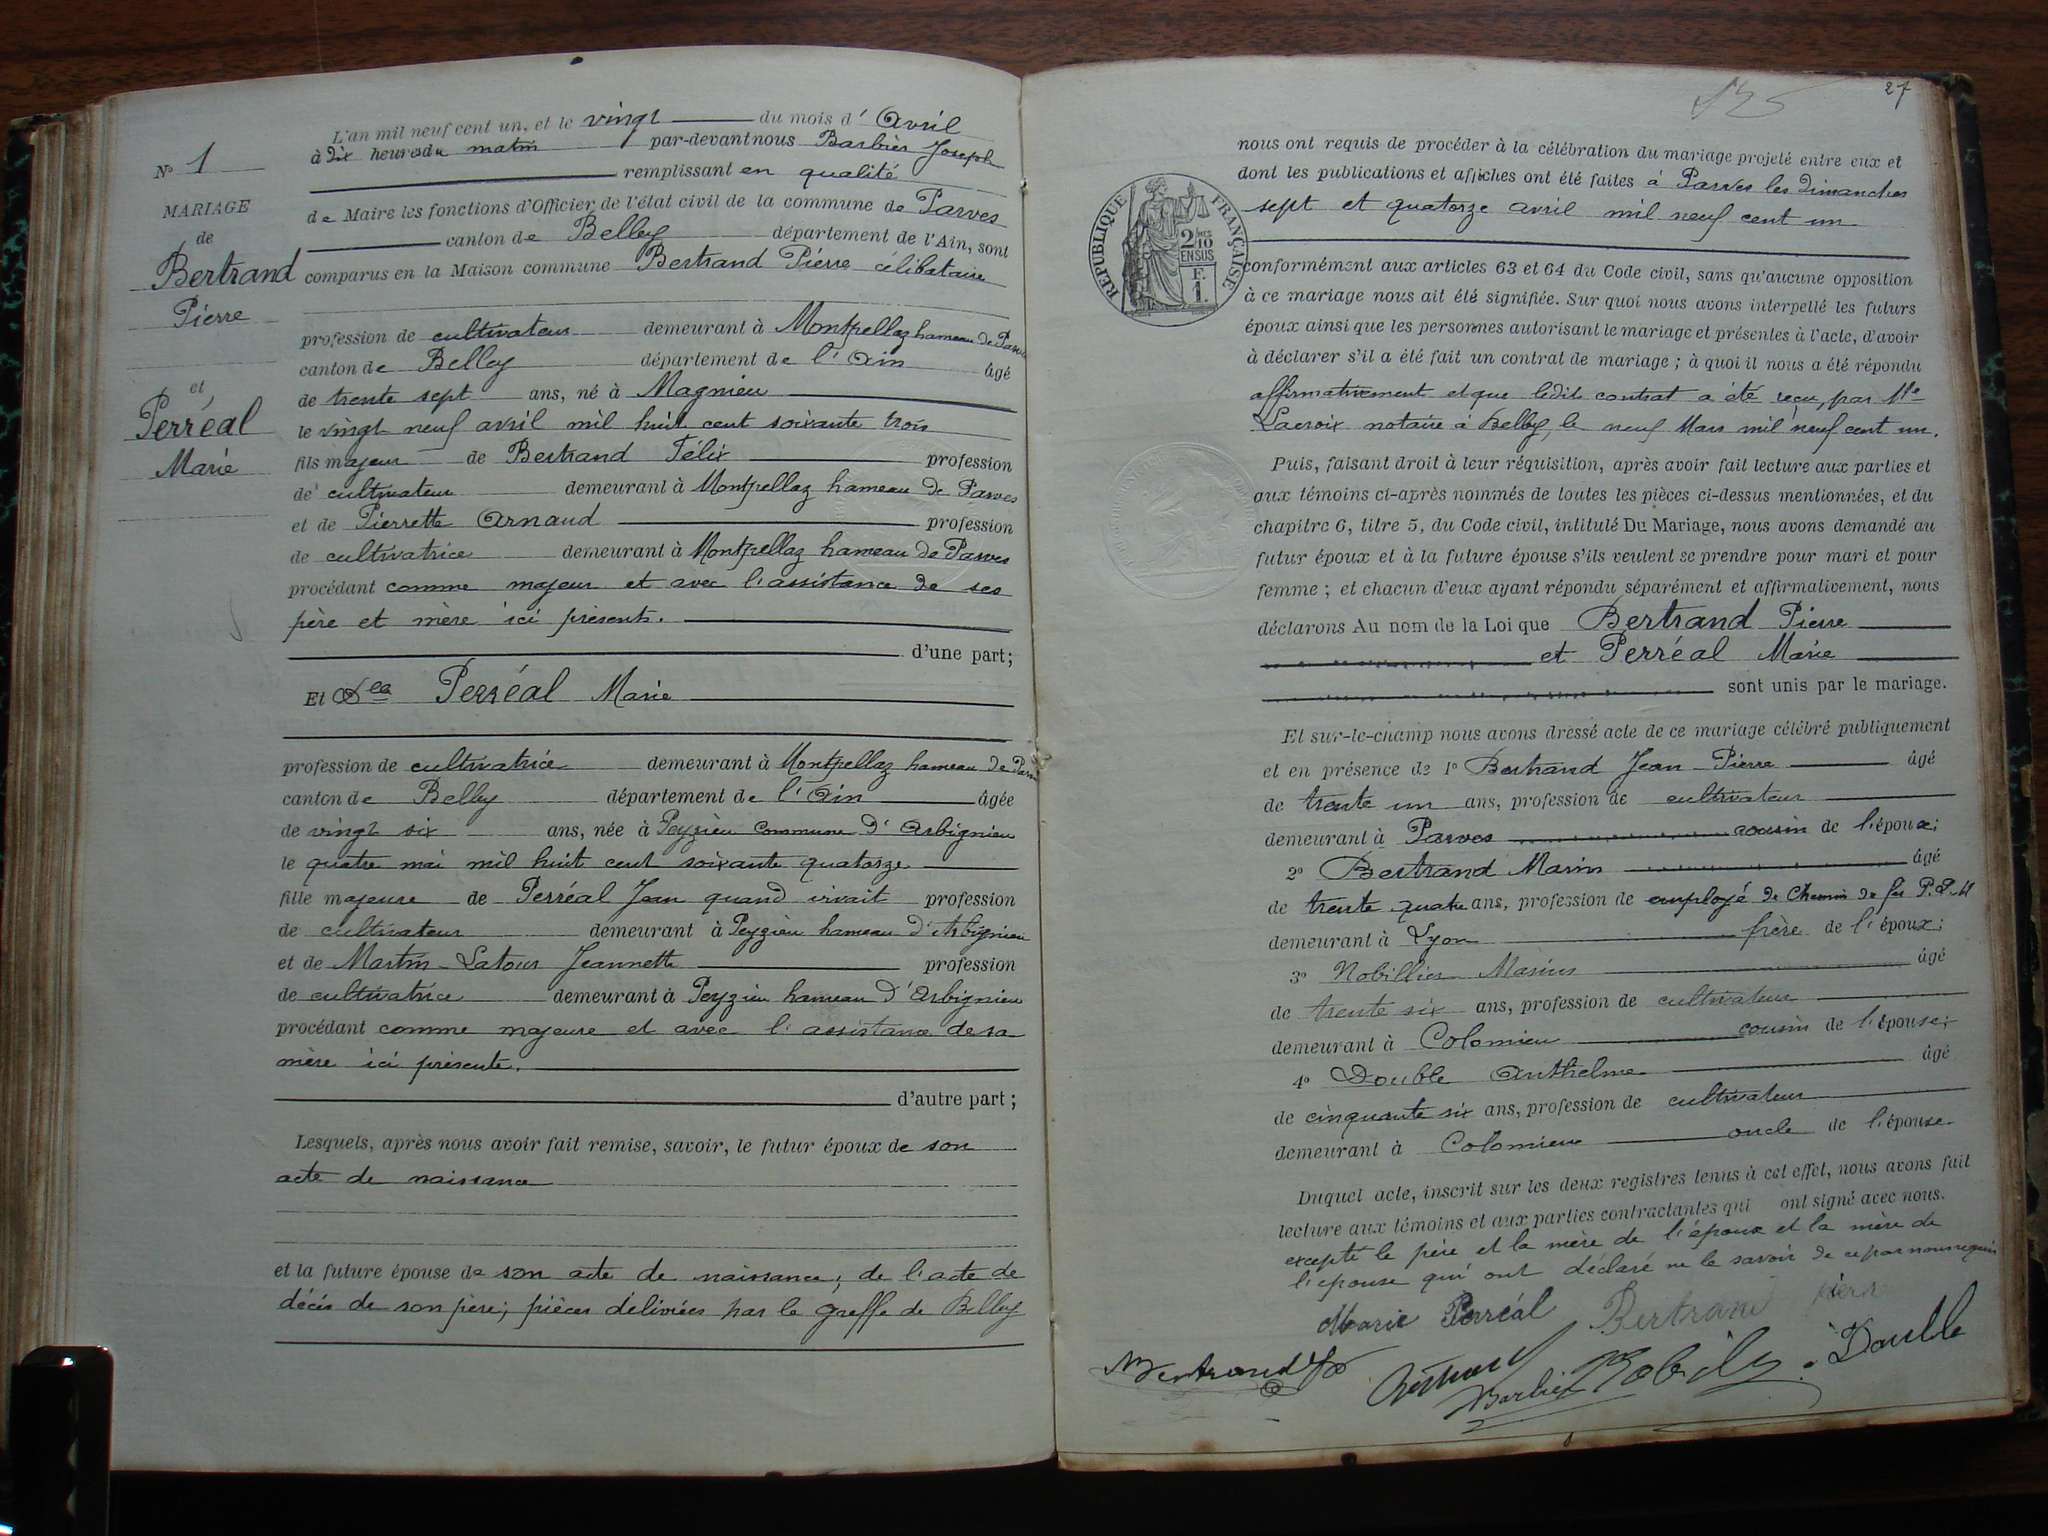 N° 1
MARIAGE
de
Bertrand
Pierre
et
Perréal
Marie
L'an mil neuf cent un, et le vingt du mois d'Avril
à dix heures du matin par-devant nous Barbier Joseph
remplissant en qualité
de Maire les fonctions d'Officier de l'état civil de la commune de Parves
canton de Belley département de l'Ain, sont
comparus en la Maison commune Bertrand Pierre célibataire
profession de cultivateur demeurant à Montpellaz hameau de Parves
canton de Belley département de l'Ain âgé
de trente sept ans, né à Magnieu
le vingt neuf avril mil huit cent soixante trois
fils majeur de Bertrand Félix profession
de cultivateur demeurant à Montpellaz hameau de Parves
et de Pierrette Arnaud profession
de cultivatrice demeurant à Montpellaz hameau de Parves
procédant comme majeur et avec l'assistance de ses
père et mère ici présents.
d'une part;
Et Dlle Perréal Marie
profession de cultivatrice demeurant à Montpellaz hameau de Parves
canton de Belley département de l'Ain âgée
de vingt six ans, née à Peyzieu commune d'Arbignieu
le quatre mai mil huit cent soixante quatorze
fille majeure de Perréal Jean quand vivait profession
de cultivateur demeurant à Peyzieu hameau d'Arbignieu
et de Martin-Latour Jeannette profession
de cultivatrice demeurant à Peyzieu hameau d'Arbignieu
procédant comme majeure et avec l'assistance de sa
mère ici présente.
d'autre part;
Lesquels, après nous avoir fait remise, savoir, le futur époux de son
acte de naissance
et la future épouse de son acte de naissance; de l'acte de
décès de son père; pièces délivrées par le greffe de Belley
27
nous ont requis de procéder à la célébration du mariage projeté entre eux et
dont les publications et affiches ont été faites à Parves les dimanches
sept et quatorze avril mil neuf cent un
RÉPUBLIQUE FRANÇAISE
2/10
EN SUS
F.
1.
conformément aux articles 63 et 64 du Code civil, sans qu'aucune opposition
à ce mariage nous ait été signifiée. Sur quoi nous avons interpellé les futurs
époux ainsi que les personnes autorisant le mariage et présentes à l'acte, d'avoir
à déclarer s'il a été fait un contrat de mariage; à quoi il nous a été répondu
affirmativement et que ledit contrat a été reçu, par Me
Lacroix notaire à Belley, le neuf Mars mil neuf cent un.
Puis, faisant droit à leur réquisition, après avoir fait lecture aux parties et
aux témoins ci-après nommés de toutes les pièces ci-dessus mentionnées, et du
chapitre 6, titre 5, du Code civil, intitulé Du Mariage, nous avons demandé au
futur époux et à la future épouse s'ils veulent se prendre pour mari et pour
femme; et chacun d'eux ayant répondu séparément et affirmativement, nous
déclarons Au nom de la Loi que Bertrand Pierre
et Perréal Marie
sont unis par le mariage.
Et sur-le-champ nous avons dressé acte de ce mariage célébré publiquement
et en présence de 1° Bertrand Jean-Pierre âgé
de trente un ans, profession de cultivateur
demeurant à Parves cousin de l'époux;
2° Bertrand Marin âgé
de trente quatre ans, profession de employé de Chemin de fer P.L.M
demeurant à Lyon frère de l'époux;
3° Nobillier Marius âgé
de trente six ans, profession de cultivateur
demeurant à Colomieu cousin de l'épouse;
4° Double Anthelme âgé
de cinquante six ans, profession de cultivateur
demeurant à Colomieu oncle de l'épouse
Duquel acte, inscrit sur les deux registres tenus à cet effet, nous avons fait
lecture aux témoins et aux parties contractantes qui ont signé avec nous.
excepté le père et la mère de l'époux et la mère de
l'épouse qui ont déclaré ne le savoir de ce par nous requis
Marie Perréal Bertrand Pierre
Bertrand Barbier Double